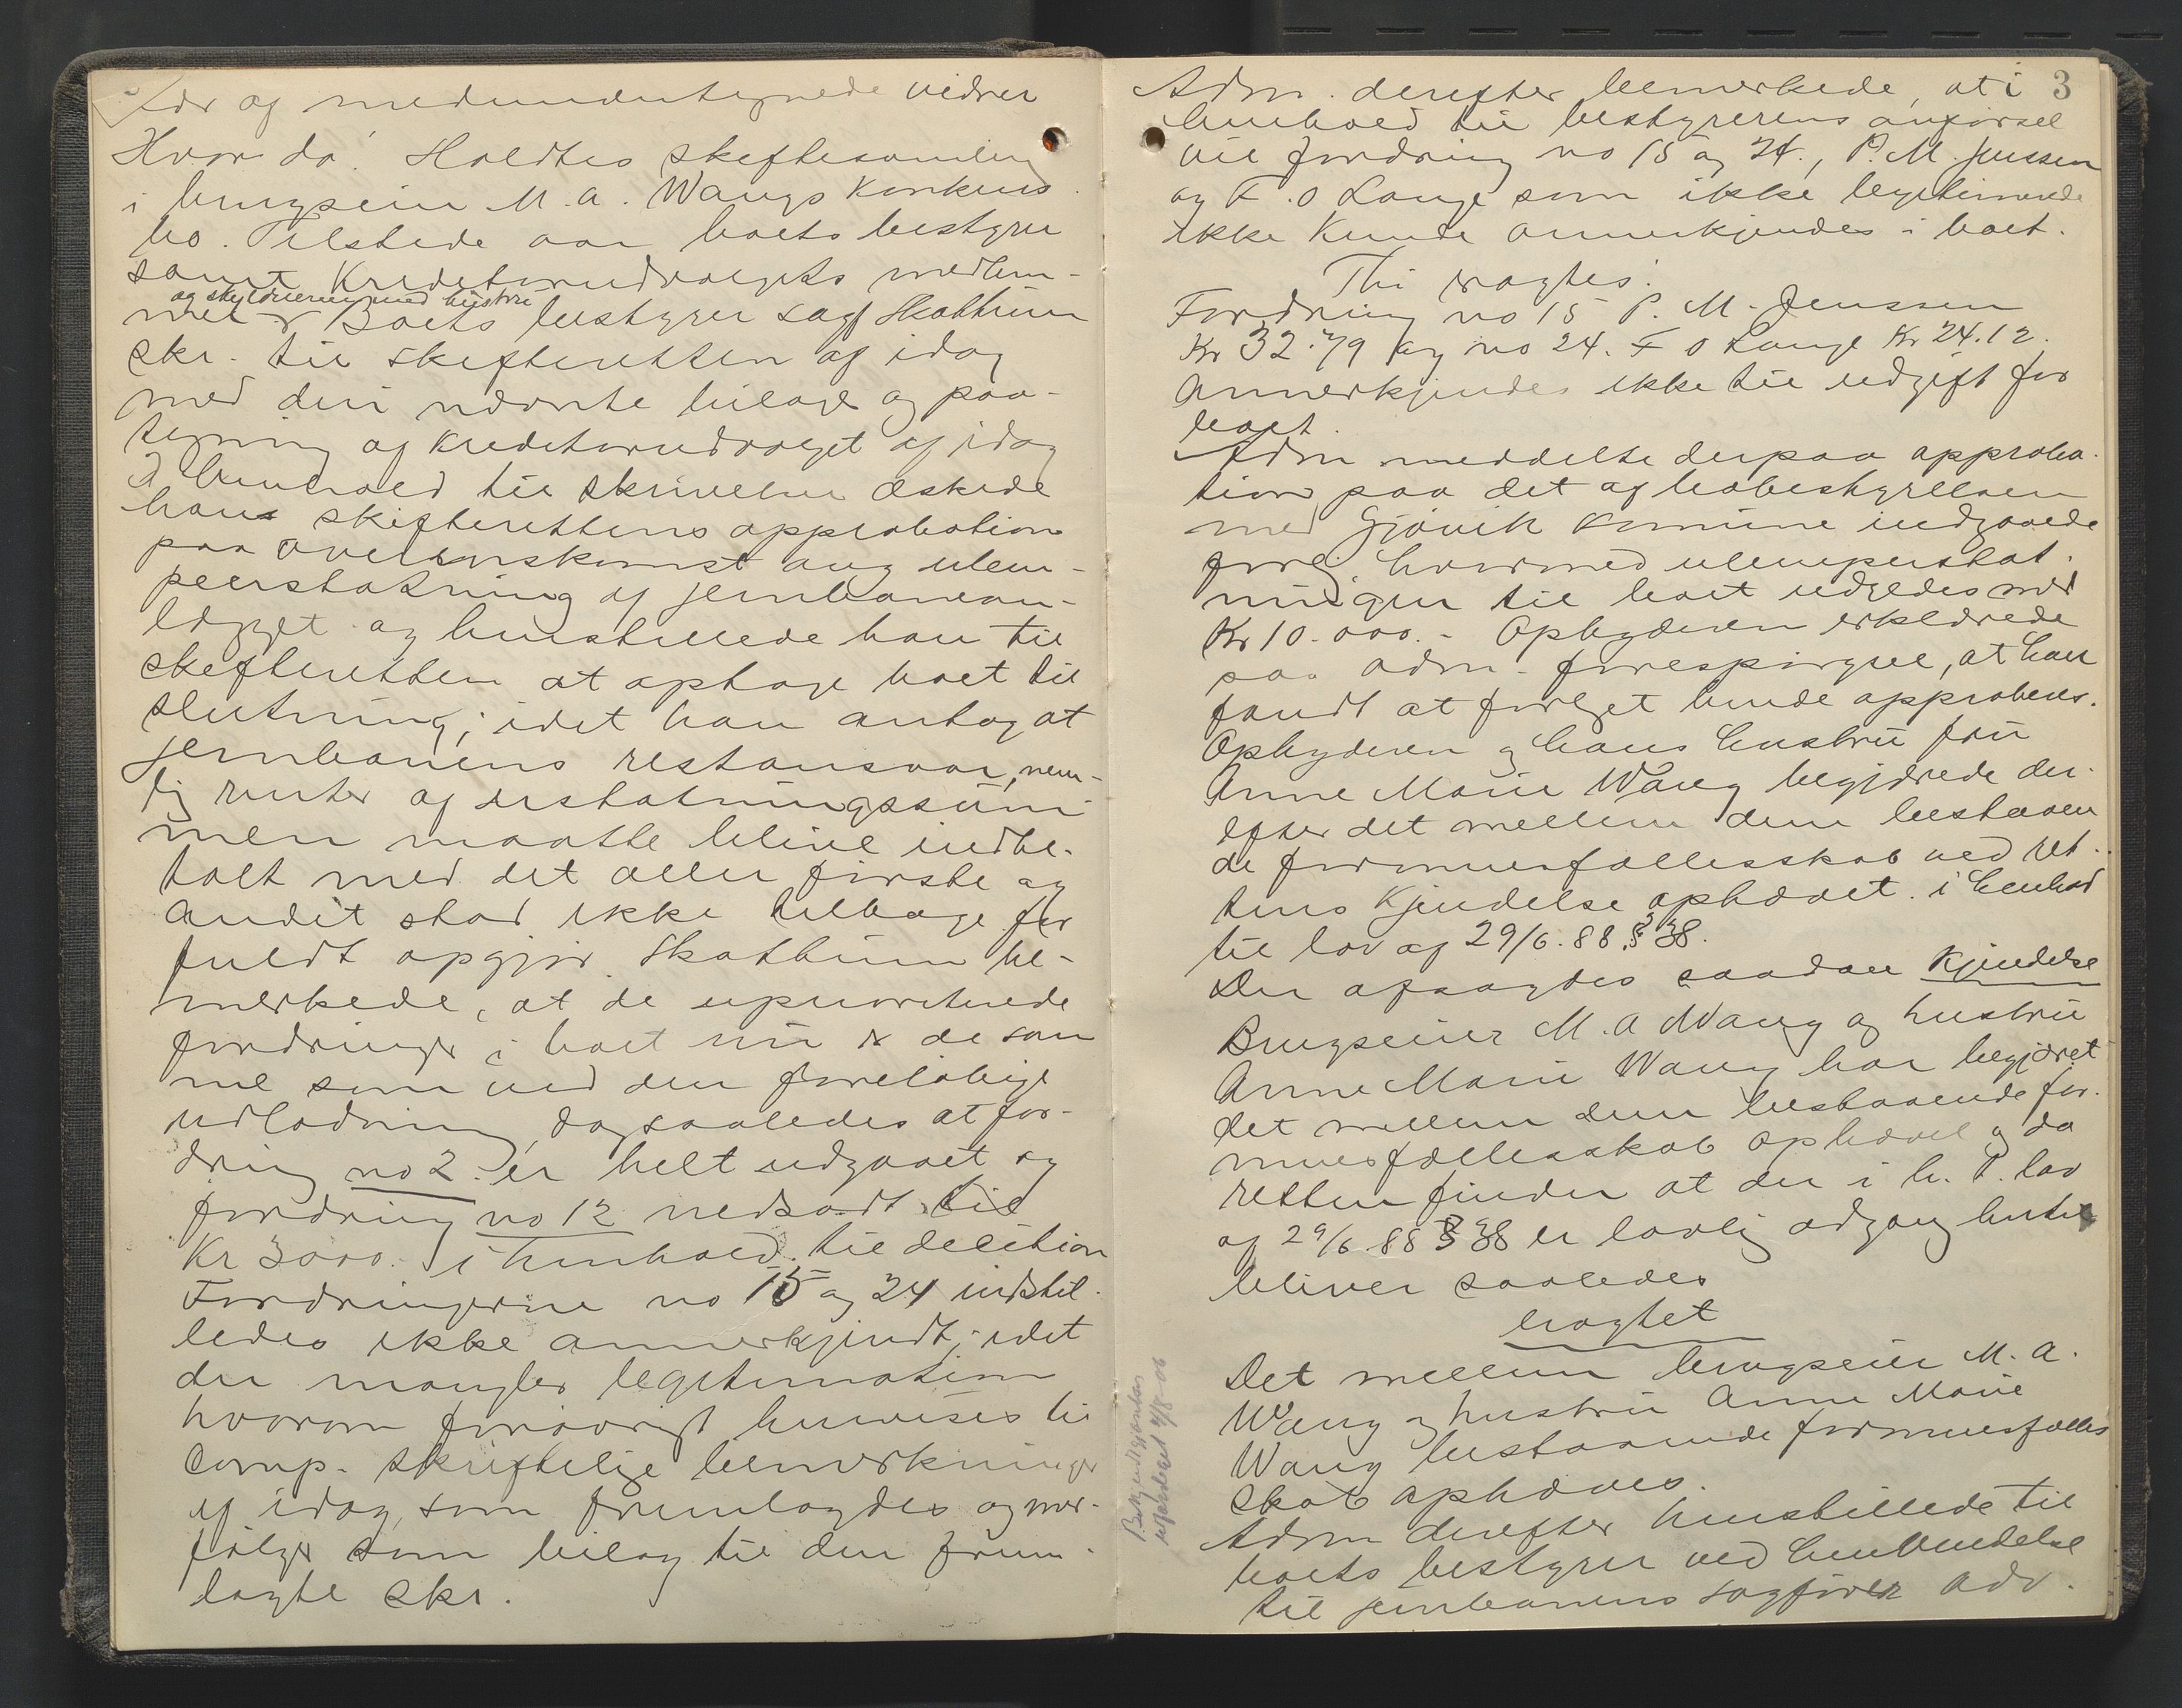 tær og medundertegnede vidner
Hvor da: Holdtes skiftesamling
i brugseier M. A. Wangs Konkurs
bo. Tilstede var boets bestyrer
samt Kreditorudvalgets medlem-
og skyldneren med hustru
mer. Boets bestyrer sagf Skattum
skr. til skifteretten af idag
med deri nævnte bilage og paa-
tegning af Kreditorudvalget af idag
I henhold til skrivelsen æskede
han skifterettens approbation
paa overenskomst ang ulem-
peerstatning af jernbanean-
lægget og henstillede han til
skifteretten at optage boet til
slutning; idet han antog at
jernbanens restansvar, nem-
lig renter af erstatningssum-
men maatte blive indbe-
talt med det aller første og
andet stod ikke tilbage for
fuldt opgjør. Skattum be-
merkede, at de uprioriterede
fordringer i boet nu er de sam
me som ved den foreløbige
udlodning, dog saaledes at for-
dring no 2 er helt udgaaet og
fordring no 12 nedsadt til
Kr 3000. i henhold til decition
Fordringerne no 15 og 24 indstil-
ledes ikke annerkjendt; idet
der mangler legitimation
hvorom forøvrigt henvises til
Comp. skriftelige bemerkninger
af idag, som fremlagdes og med-
følger som bilag til den frem-
lagte skr.
3
Adm. derefter bemerkede, at i
henhold til bestyrerens anførsel
vil fordring no 15 og 24., P. M. Jenssen
og F. O Lange som ikke legitimerede
ikke kunde annerkjendes i boet.
Thi eragtes:
Fordring no 15 P. M. Jenssen
Kr 32.79 og no 24. F O Lange Kr 24.12.
Annerkjendes ikke til udgift for
boet.
Adm meddelte derpaa approba-
tion paa det af bobestyrelsen
med Gjøvik Komune indgaaede
forlig hvorved ulempeerstat-
ningen til boet udgedes med
Kr 10.000.- Opbyderen erklærede
paa adm. forespørgsel, at han
fandt at forliget burde approberes.
Opbyderen og hans hustru fru
Anne Marie Wang begjærede der-
efter det mellem dem bestaaen
de formuesfællesskab ved ret-
tens Kjendelse ophævet. i henhold
til lov af 29/6. 88 § 38.
Der afsagdes saadan Kjendelse
Brugseier M. A Wang og hustru
Anne Marie Wang har begjæret
det mellem dem bestaaende for-
muesfællesskab ophævet og da
retten finder at der i h. t. lov
af 29/6. 88 § 38 er lovlig adgang hertil
bliver saaledes
eragtet
Det mellem brugseier M. A.
Wang og hustru Anne Marie
Wang bestaaende formuesfælles
skab ophæves.
Adm derefter henstillede til
boets bestyrer ved henvendelse
til jernbanens sagfører Adv.
Bekjendtgjørelse
udfærdiget 4/8-06